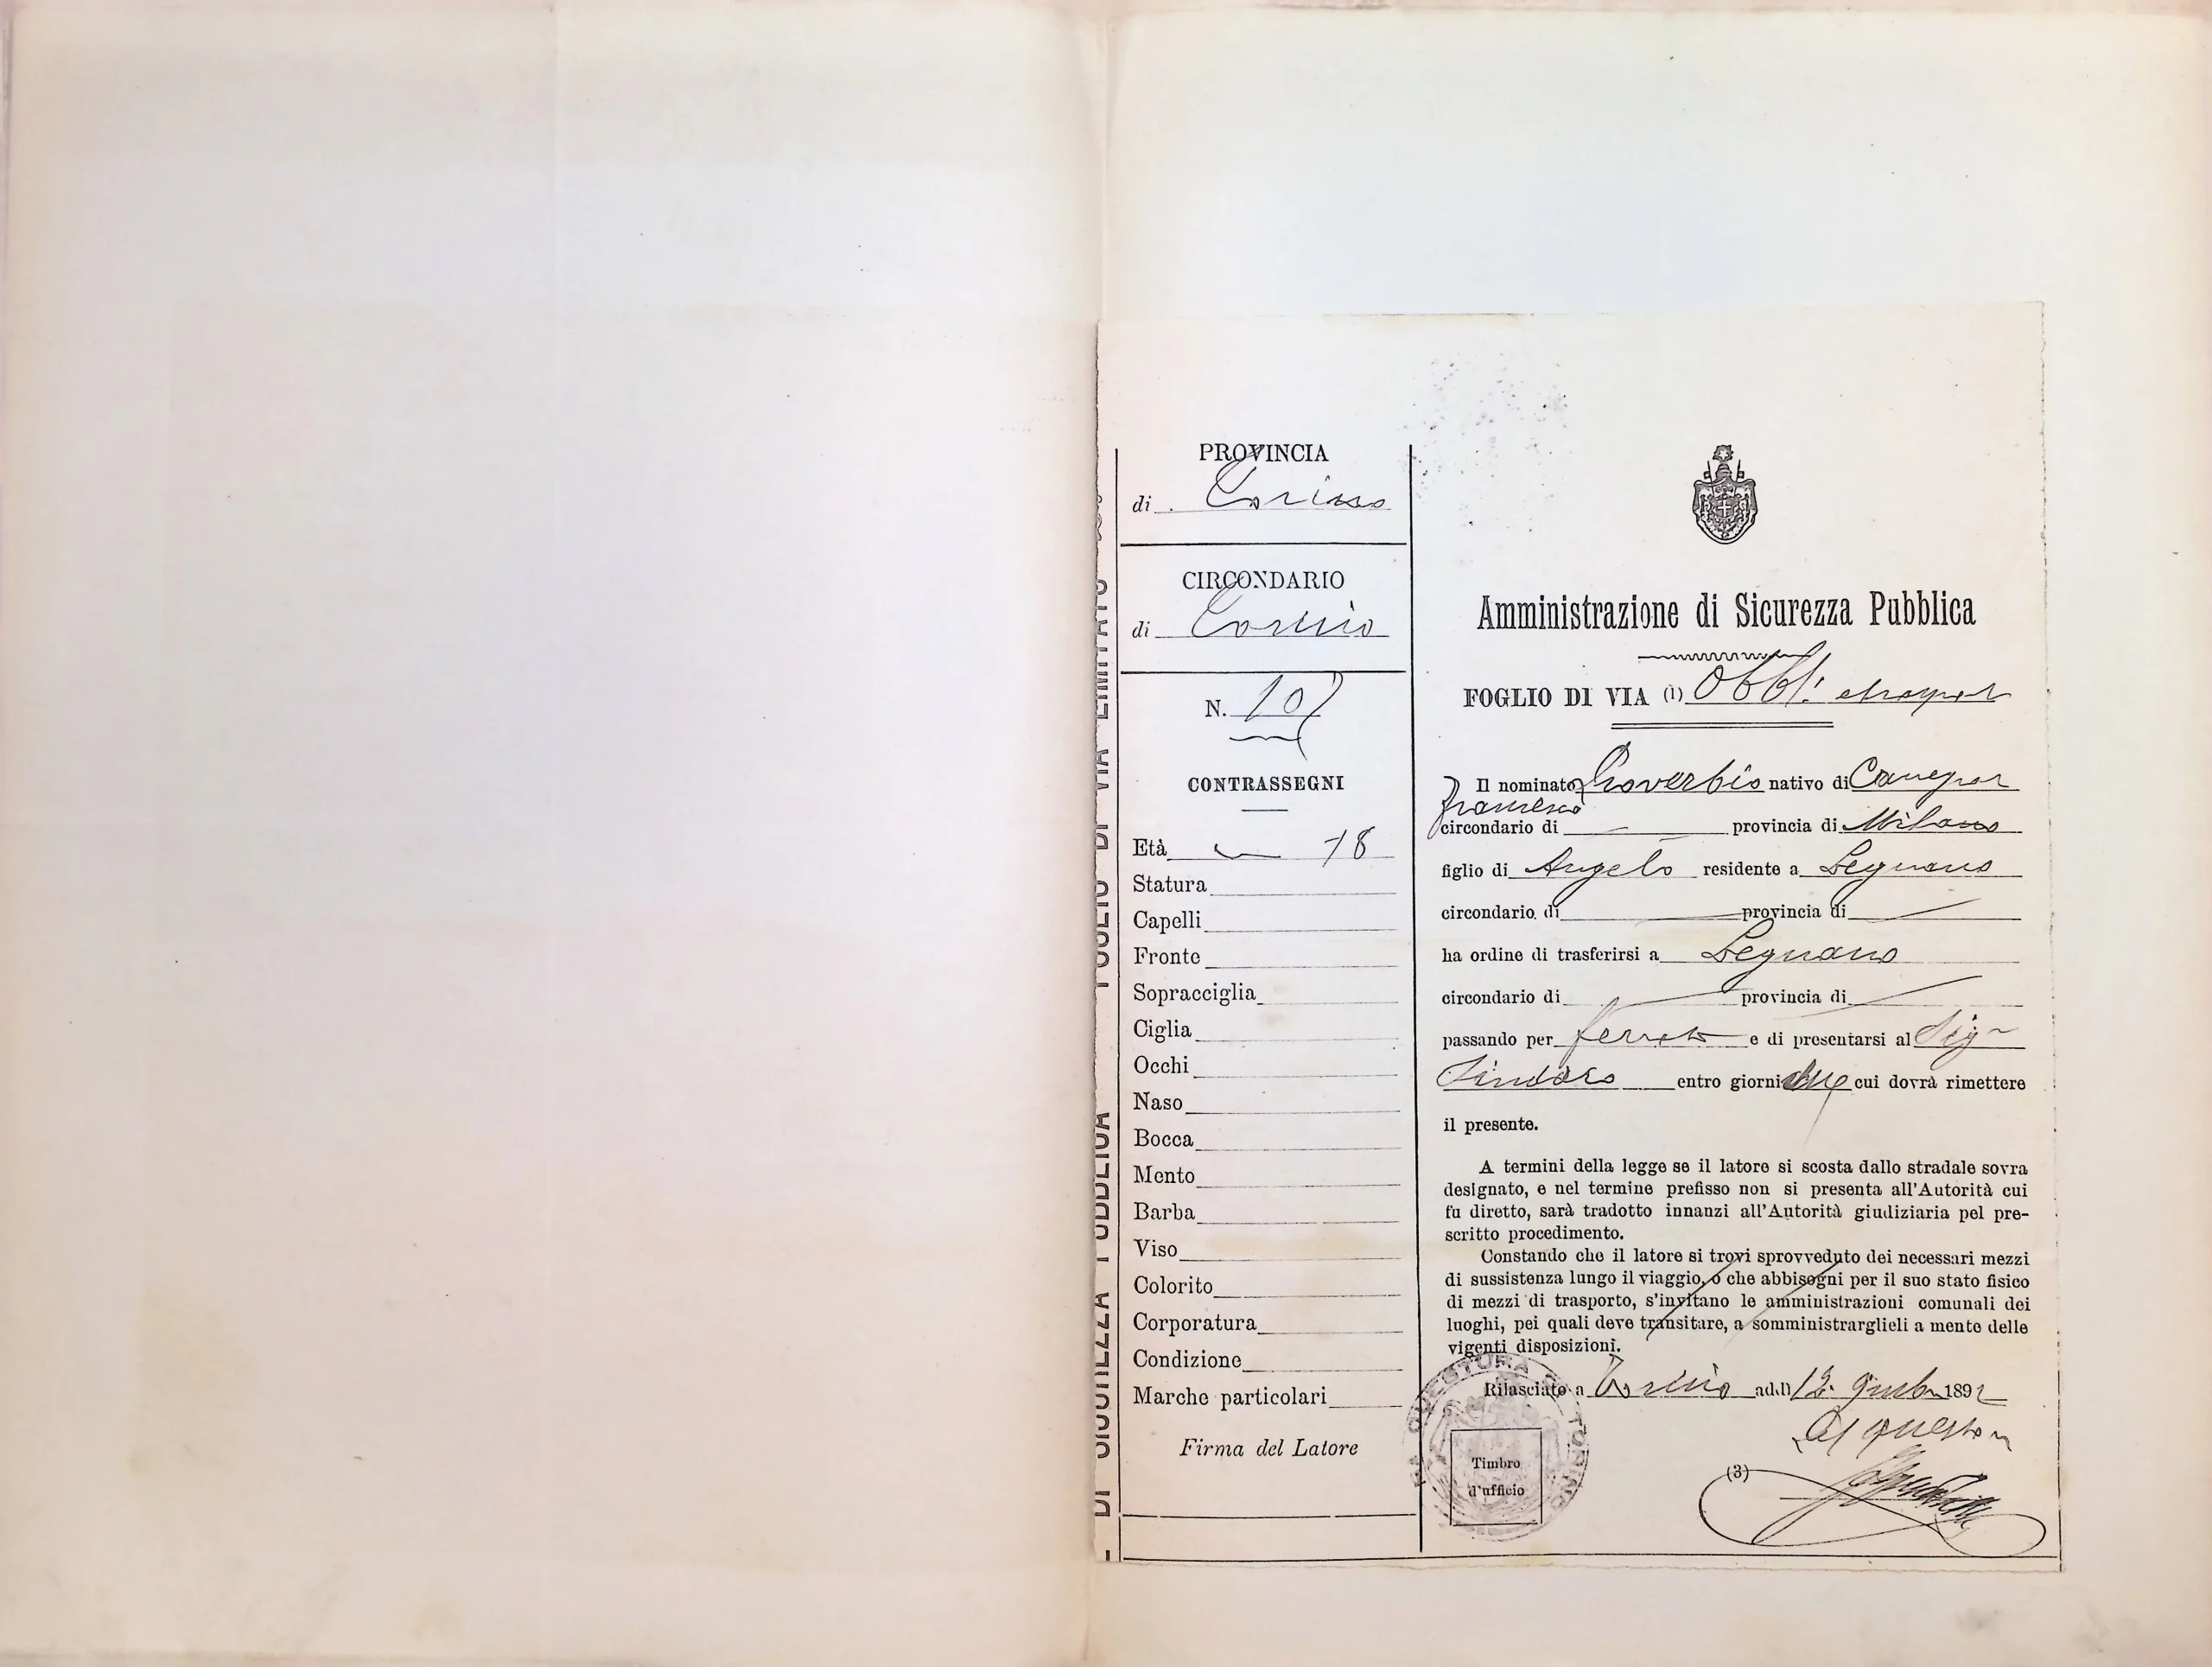 PROVINCIA
di Torino
CIRCONDARIO
di Torino
N. 107
CONTRASSEGNI
Età 18
Statura
Capelli
Fronte
Sopracciglia
Ciglia
Occhi
Naso
Bocca
Mento
Barba
Viso
Colorito
Corporatura
Condizione
Marche particolari
Firma del Latore
Amministrazione di Sicurezza Pubblica
FOGLIO DI VIA (1) Obbl:
Il nominato Proverbio nativo di
Francesco
circondario di provincia di Milano
figlio di Angelo residente a Legnano
circondario di provincia di
ha ordine di trasferirsi a Legnano
circondario di provincia di
passando per e di presentarsi al Sig
Sindaco entro giorni due cui dovrà rimettere
il presente.
A termini della legge se il latore si scosta dallo stradale sovra
designato, e nel termine prefisso non si presenta all'Autorità cui
fu diretto, sarà tradotto innanzi all'Autorità giudiziaria pel pre-
scritto procedimento.
Constando che il latore si trovi sprovveduto dei necessari mezzi
di sussistenza lungo il viaggio, o che abbisogni per il suo stato fisico
di mezzi di trasporto, s'invitano le amministrazioni comunali dei
luoghi, pei quali deve transitare, a somministrarglieli a mente delle
vigenti disposizioni.
Rilasciato a Torino addì 12 1892
QUESTURA TORINO
Timbro
d'ufficio
(3)